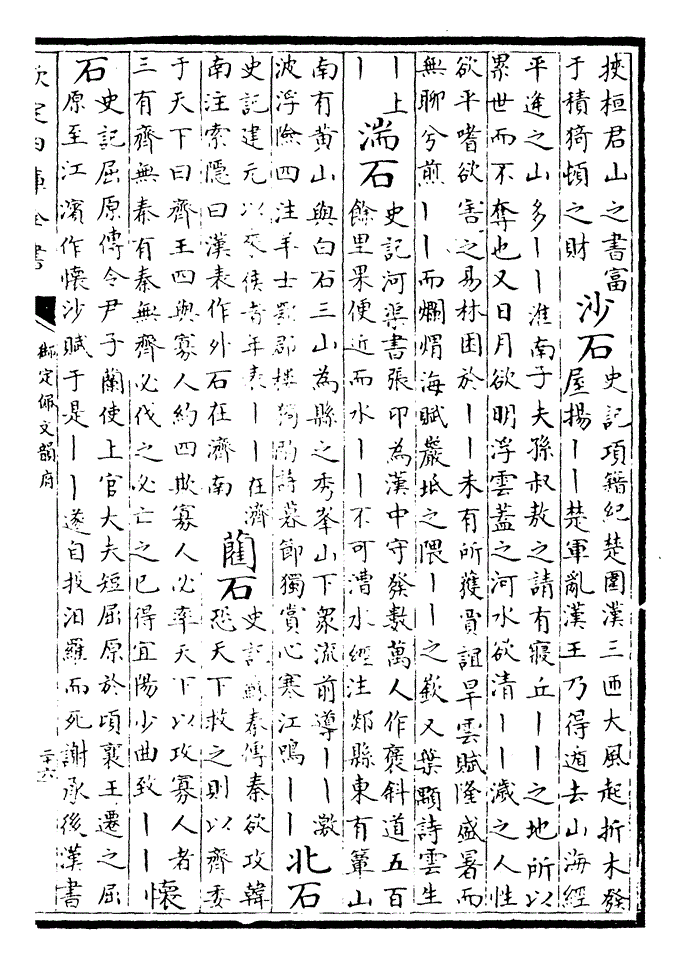 挾桓君山之書富
于積猗頓之財
沙石
史記項籍紀楚圍漢三匝大風起折木發
屋揚丨丨楚軍亂漢王乃得遁去山海經
平逄之山多丨丨淮南子夫孫叔敖之請有寢丘丨丨之地所以
累世而不奪也又日月欲明浮雲蓋之河水欲清丨丨濊之人性
欲平嗜欲害之易林困於丨丨未有所獲賈誼旱雲賦隆盛暑而
無聊兮煎丨丨而爛熅海賦巖坻之隈丨丨之嶔又葉顒詩雲生
丨上
丨
湍石
史記河渠書張卬為漢中守發數萬人作褒斜道五百
餘里果便近而水丨丨不可漕水經注郯縣東有簟山
南有黄山與白石三山為縣之秀峯山下衆流前導丨丨激
波浮險四注羊士諤郡樓獨酌詩暮節獨賞心寒江鳴丨丨
北石
史記建元以來侯者年表丨丨在濟
南注索隱曰漢表作外石在濟南
藺石
史記蘇秦傳秦欲攻韓
恐天下救之則以齊委
于天下曰齊王四與寡人約四欺寡人必率天下以攻寡人者
三有齊無秦有秦無齊必伐之必亡之已得宜陽少曲致丨丨
懷
石
史記屈原傳令尹子蘭使上官大夫短屈原於頃襄王遷之屈
原至江濱作懷沙賦于是丨丨遂自投汨羅而死謝承後漢書
欽定四庫全書
御定佩文韻府
二十六